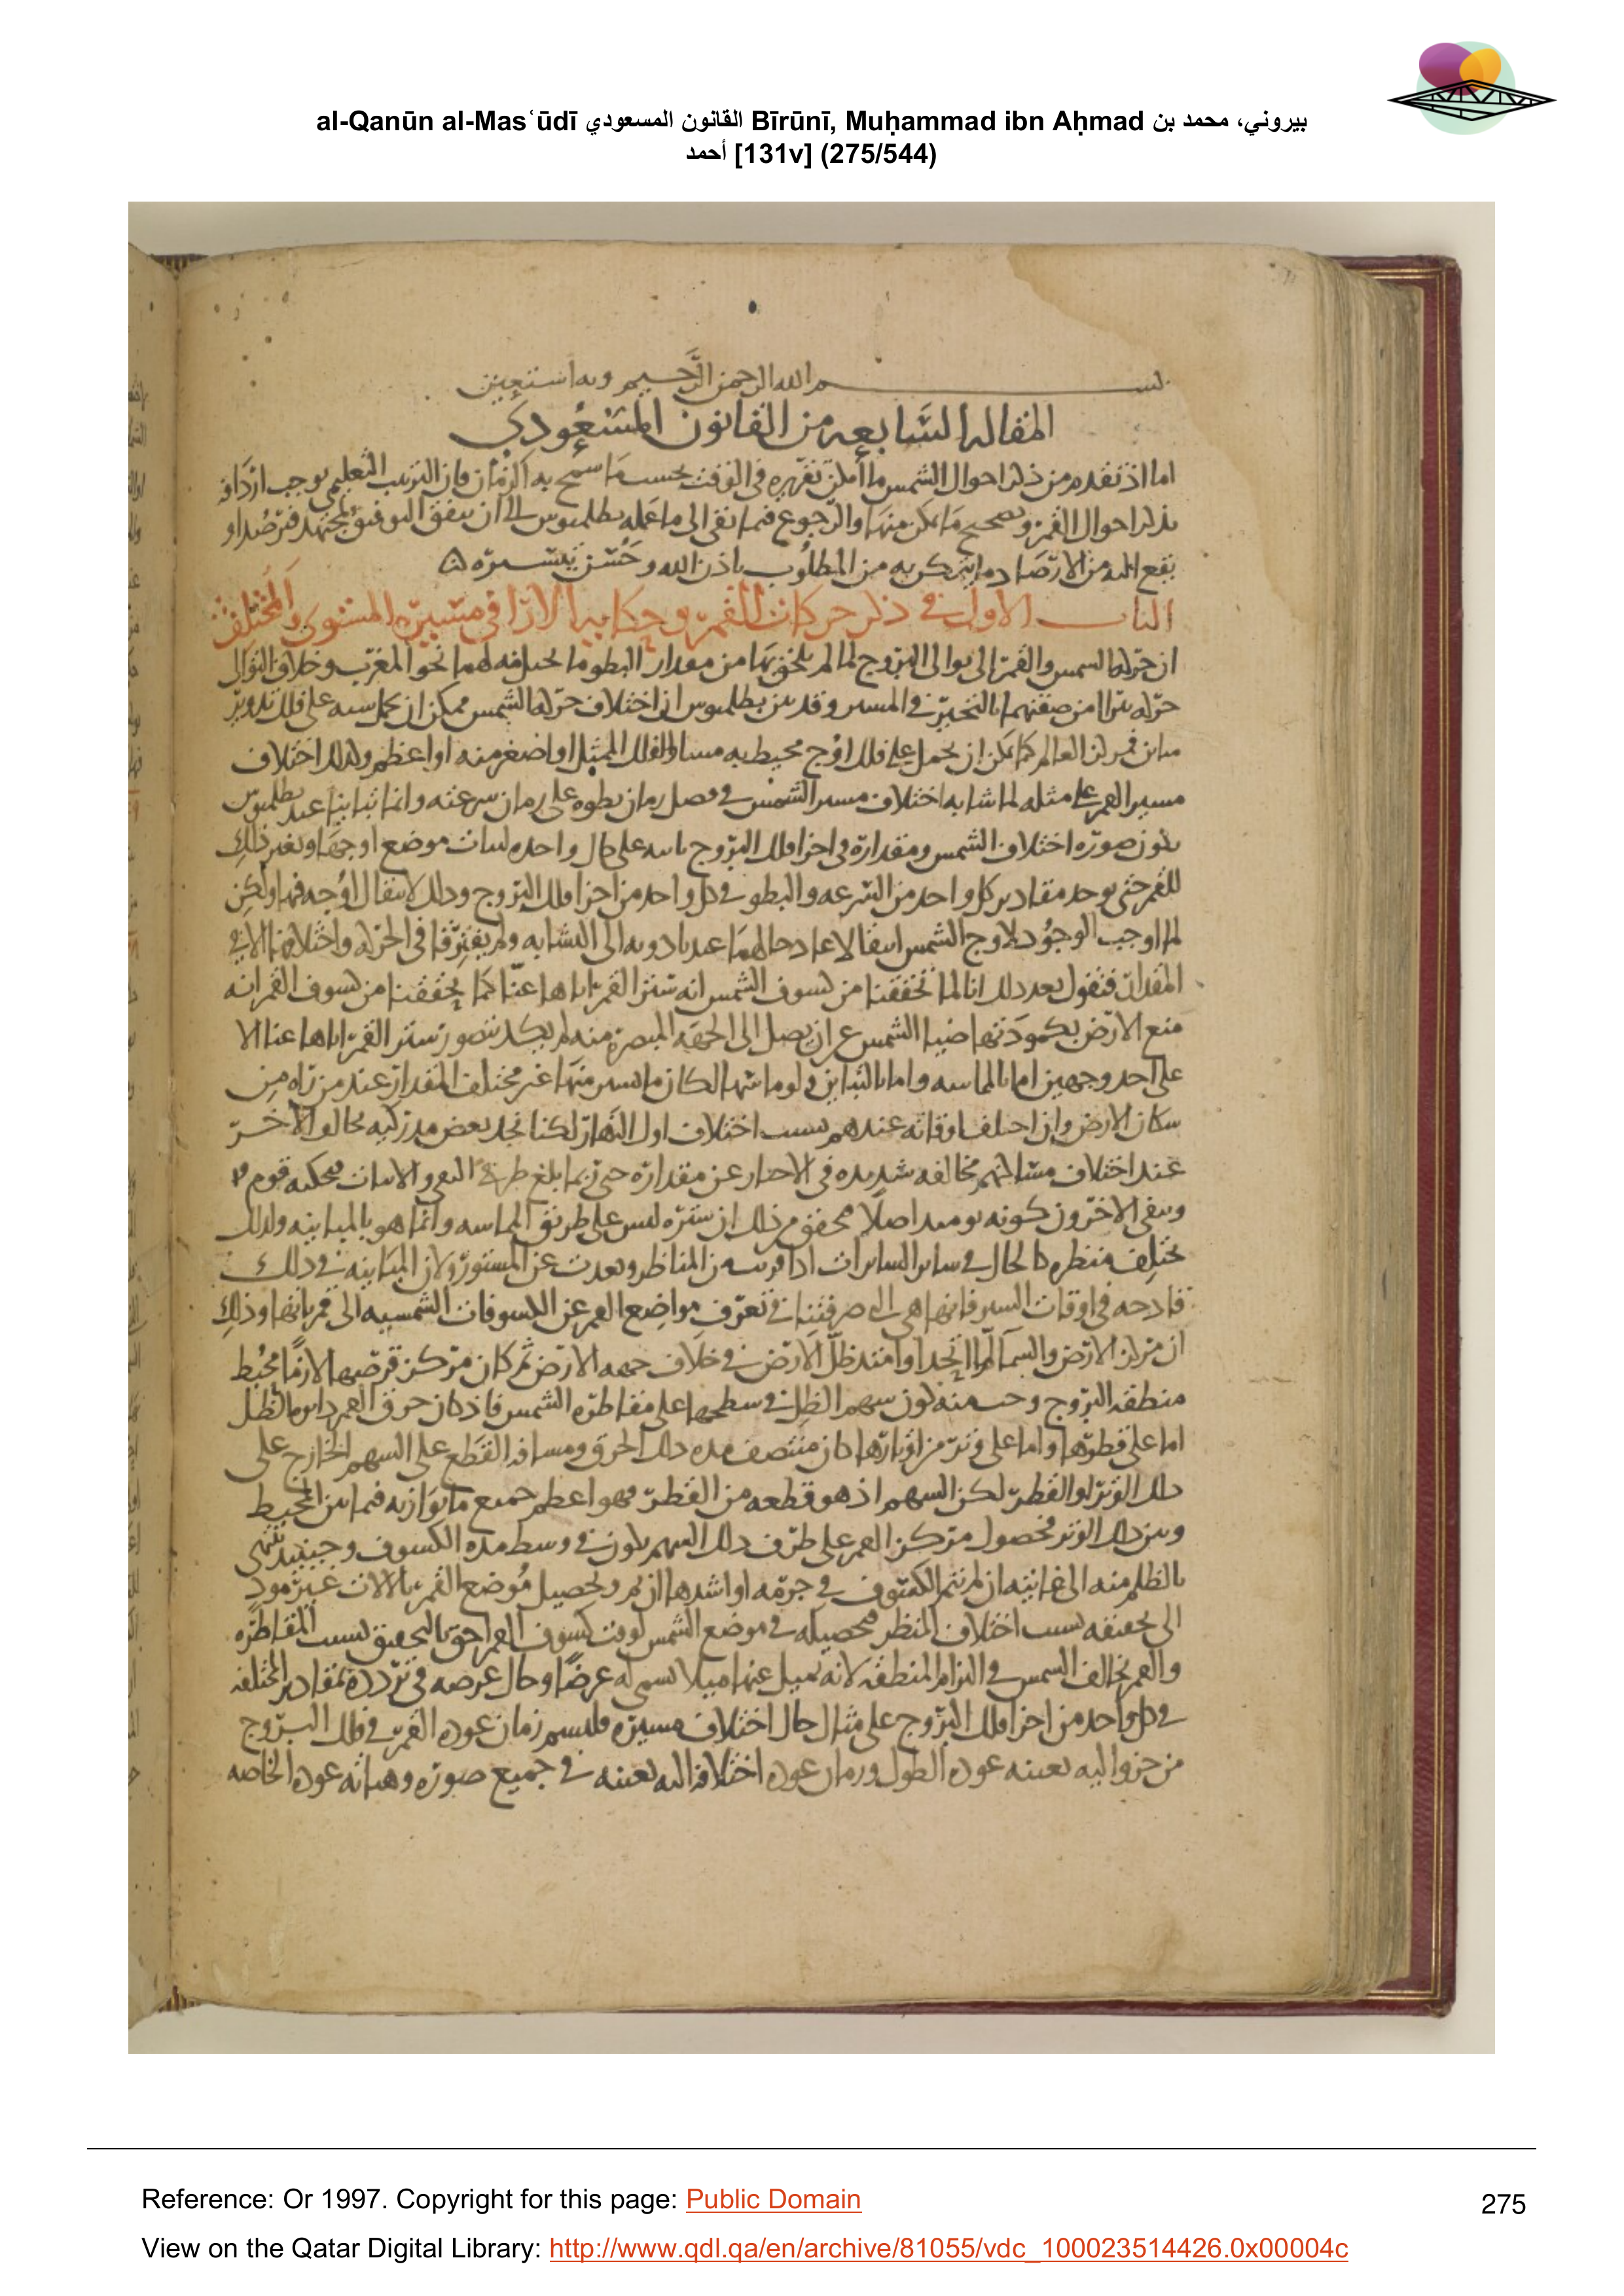 al-Qanūn al-Mas‘ūdī القانون المسعودي Bīrūnī, Muḥammad ibn Aḥmad بيروني، محمد بن
أحمد [131v] (275/544)
بسم الله الرحمن الرحيم وبه استعين
المقالة السابعة من القانون المسعودي
اما اذ تقدم من ذكر احوال الشمس ما امكن تقريره في الوقت بحسب ما سمح به الزمان فان الترتيب التعليمي يوجب اردافه
بذكر احوال القمر وتصحيح ما يمكن منها والرجوع فيما بقى الى ما عمله بطلميوس الى ان يتفق التوفيق لمجتهد فيرصد او
يقع اليه من الارصاد ما يتمكن به من المطلوب باذن الله وحسن تيسيره
الباب الاول في ذكر حركات القمر وحكاية الارا في مسيره المستوى والمختلف
ان حركة الشمس والقمر الى توالى البروج لما لم يلحق بها من مقدار البطو ما يخيل فيه لهما نحو المغرب وخلاف التوالى
حركة من صفتهما بالتحير في المسير وقد بين بطلميوس ان اختلاف حركة الشمس ممكن ان يحمل سببه على فلك تدوير
مركز العالم كما يمكن ان يحمل على فلك اوج محيط به مساو للفلك الممثل او اصغر منه او اعظم وكذلك اختلاف
مسير القمر على مثله لما شابه اختلاف مسير الشمس في فضل زمان بطوه على زمان سرعته وانما تباينا عند بطلميوس
بكون صورة اختلاف الشمس ومقداره في اجزا فلك البروج ثابتة على حال واحدة لثبات موضع اوجها وتغير ذلك
للقمر حتى يوجد مقادير كل واحد من السرعة والبطو في كل واحد من اجزا فلك البروج وذلك لانتقال اوجه فيها ولكن
لما اوجب الوجود لاوج الشمس انتقالا عاد حالهما عند الى التشابه ولم يفترقا في الحركة واختلافها الا في
المقدار فنقول بعد ذلك انا لما تحققنا من كسوف الشمس انه ستر القمر اياها عنا كما تحققنا من كسوف القمر انه
منع الارض بكمودتها ضيا الشمس عن ان يصل الى الجهة المبصرة منه لم يكد يتصور ستر القمر اياها عنا الا
على احد وجهين اما بالمماسة واما بالتباين ولو ماسها لكان ما يستر منها غير مختلف المقدار عند من راه من
سكان الارض وان اختلف اوقاته عندهم بسبب اختلاف اول النهار لكنا نجد بعض مدركيه يخالف الاخر
عند اختلاف مساكنهم مخالفة شديدة في الاخبار عن مقداره حتى ربما بلغ طرفي النفى والاثبات فيحكيه قوم
وينفى الاخرون كونه يومئذ اصلا فتحقق من ذلك ان ستره ليس على طريق المماسة وانما هو بالمباينة ولذلك
يختلف منظره كالحال في ساير الساترات اذا قربت من الناظر وبعدت عن المستور ولان المباينة في ذلك
قادحة في اوقات الستر فانها هي التي صرفتنا في تعرف مواضع القمر عن الكسوفات الشمسية الى قمرياتها وذلك
ان مركز الارض والسما لما اتحدا وامتد ظل الارض في خلاف جهة الارض ثم كان مركز قرصها لازما محيط
منطقة البروج وجب منه كون سهم الظل في سطحها على مقاطرة الشمس فاذ كان خرق القمر دايرة الظل
اما على قطرها واما على وتر من اوتارها كان منتصف مدة ذلك الخرق ومسافة القطع على السهم الخارج على
ذلك الوتر او القطر لكن السهم اذ هو قطعة من القطر فهو اعظم جميع ما يوازيه فيما بين المحيط
وبين ذلك الوتر فحصول مركز القمر على طرف ذلك السهم يكون في وسط مدة الكسوف وحينئذ ينتهى
بالظلم منه الى غايته ان لم يتم الكسوف في جرمه او اشدها ان تم وتحصيل موضع القمر بالالات غير مود
الى حقيقته بسبب اختلاف المنظر فتحصيله في موضع الشمس لوقت كسوف القمر احق بالتحقيق بسبب المقاطرة
والقمر يخالف الشمس في التزام المنطقة لانه يميل عنها ميلا يسمى له عرضا وحال عرضه في تردده بمقادير المختلفة
في كل واحد من اجزا فلك البروج على مثال حال اختلاف مسيره فليسم زمان عودة القمر في فلك البروج
من جزو اليه بعينه عودة الطول وزمان عودة اختلافه اليه بعينه في جميع صوره وهيأته عودة الخاصة
Reference: Or 1997. Copyright for this page: Public Domain
275
View on the Qatar Digital Library: http://www.qdl.qa/en/archive/81055/vdc_100023514426.0x00004c